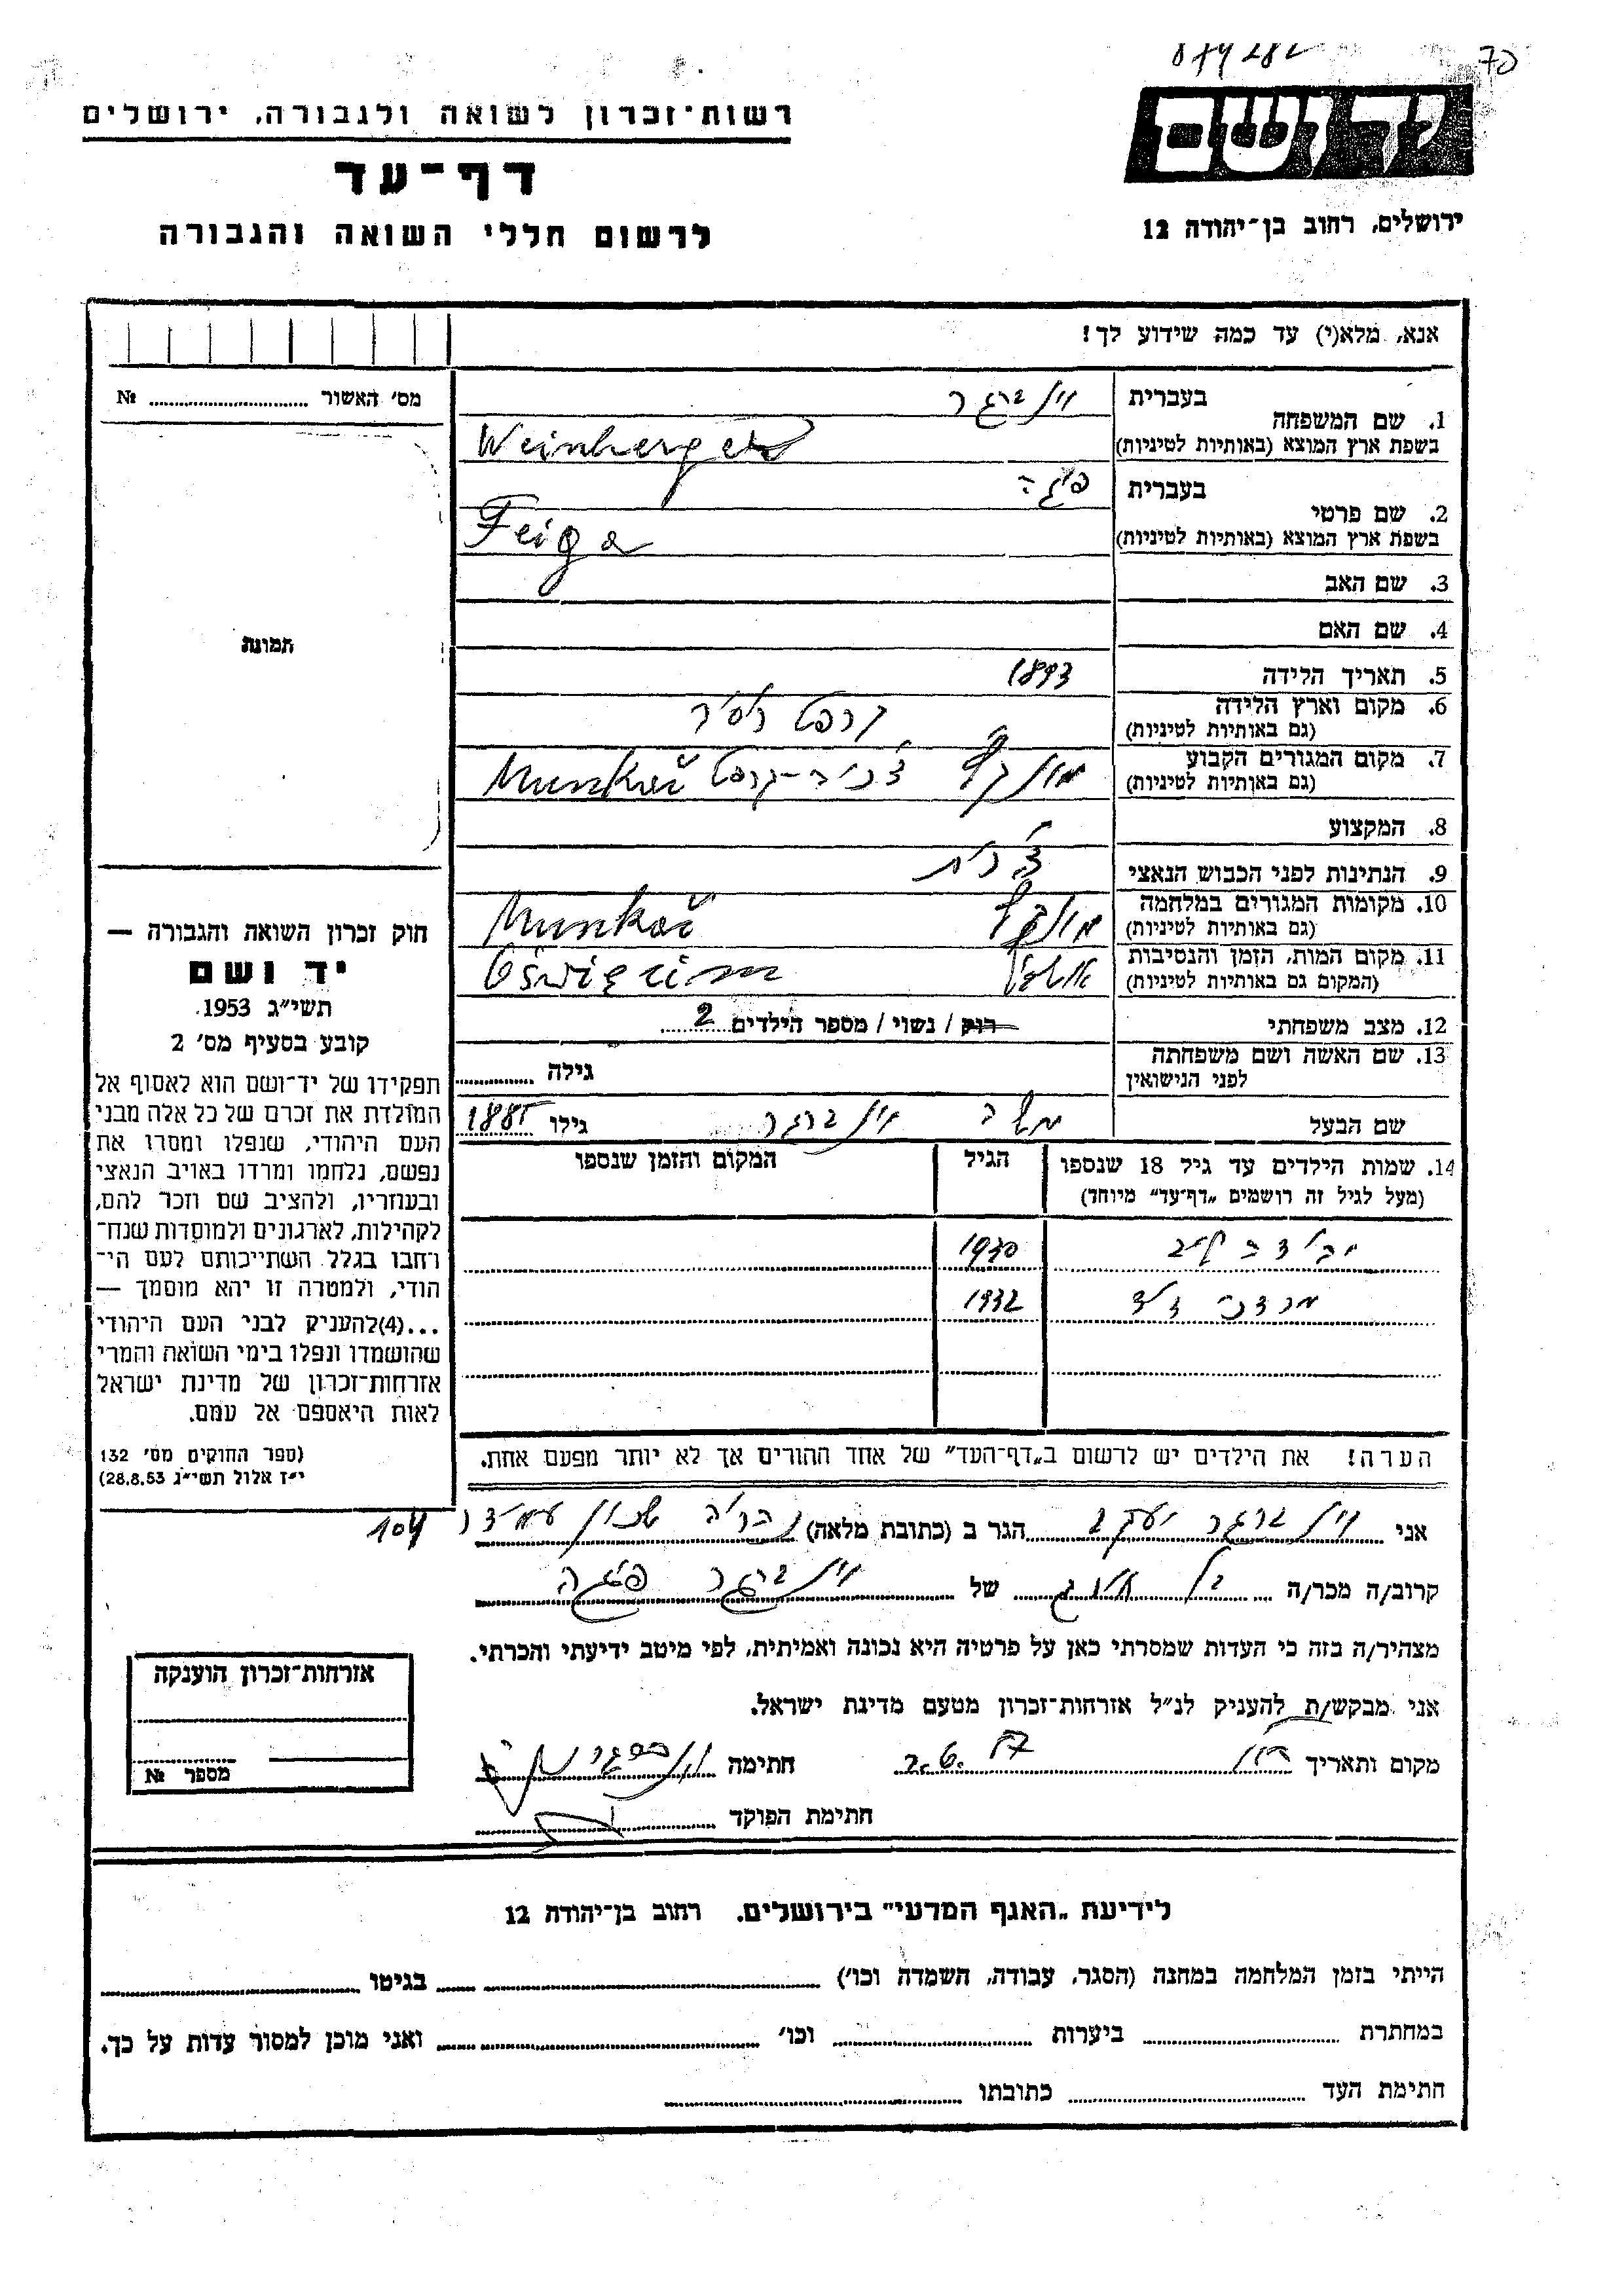 874282
70
יד ושם
ירושלים, רחוב בן־יהודה 12
רשות־זכרון לשואה ולגבורה, ירושלים
דף־עד
לרשום חללי השואה והגבורה
אנא, מלא(י) עד כמה שידוע לך!
מס' האשור № 
תמונה
1. שם המשפחה
בעברית וינברגר
בשפת ארץ המוצא (באותיות לטיניות) Weinberger
2. שם פרטי
בעברית פיגה
בשפת ארץ המוצא (באותיות לטיניות) Feiga
3. שם האב
4. שם האם
5. תאריך הלידה 1893
6. מקום וארץ הלידה
(גם באותיות לטיניות)
7. מקום המגורים הקבוע
(גם באותיות לטיניות) Munkač
8. המקצוע
9. הנתינות לפני הכבוש הנאצי
10. מקומות המגורים במלחמה
(גם באותיות לטיניות) Munkač
11. מקום המות, הזמן והנסיבות
(המקום גם באותיות לטיניות) Oświęcim
12. מצב משפחתי רוק / נשוי / מספר הילדים 2
13. שם האשה ושם משפחתה
לפני הנישואין גילה
שם הבעל משה וינברגר גילו 1885
14. שמות הילדים עד גיל 18 שנספו
(מעל לגיל זה רושמים „דף־עד” מיוחד)
הגיל
המקום והזמן שנספו
1930
מרדכי דוד 1932
הערה! את הילדים יש לרשום ב„דף־העד” של אחד ההורים אך לא יותר מפעם אחת.
חוק זכרון השואה והגבורה —
יד ושם
תשי״ג 1953.
קובע בסעיף מס' 2
תפקידו של יד־ושם הוא לאסוף אל
המולדת את זכרם של כל אלה מבני
העם היהודי, שנפלו ומסרו את
נפשם, נלחמו ומרדו באויב הנאצי
ובעוזריו, ולהציב שם וזכר להם,
לקהילות, לארגונים ולמוסדות שנח־
רחבו בגלל השתייכותם לעם הי־
הודי, ולמטרה זו יהא מוסמך —
...(4)להעניק לבני העם היהודי
שהושמדו ונפלו בימי השואה והמרי
אזרחות־זכרון של מדינת ישראל
לאות היאספם אל עמם.
(ספר החוקים מס' 132
י״ז אלול תשי״ג 28.8.53)
אני וינברגר יעקב הגר ב (כתובת מלאה) נהריה שכון עמידר 104
קרוב/ה מכר/ה בן של וינברגר פיגה
מצהיר/ה בזה כי העדות שמסרתי כאן על פרטיה היא נכונה ואמיתית, לפי מיטב ידיעתי והכרתי.
אני מבקש/ת להעניק לנ״ל אזרחות־זכרון מטעם מדינת ישראל.
מקום ותאריך 2.6.57 חתימה
חתימת הפוקד
אזרחות־זכרון הוענקה
מספר №
לידיעת „האגף המדעי” בירושלים, רחוב בן־יהודה 12
הייתי בזמן המלחמה במחנה (הסגר, עבודה, השמדה וכו') בגיטו
במחתרת ביערות וכו' ואני מוכן למסור עדות על כך.
חתימת העד כתובתו